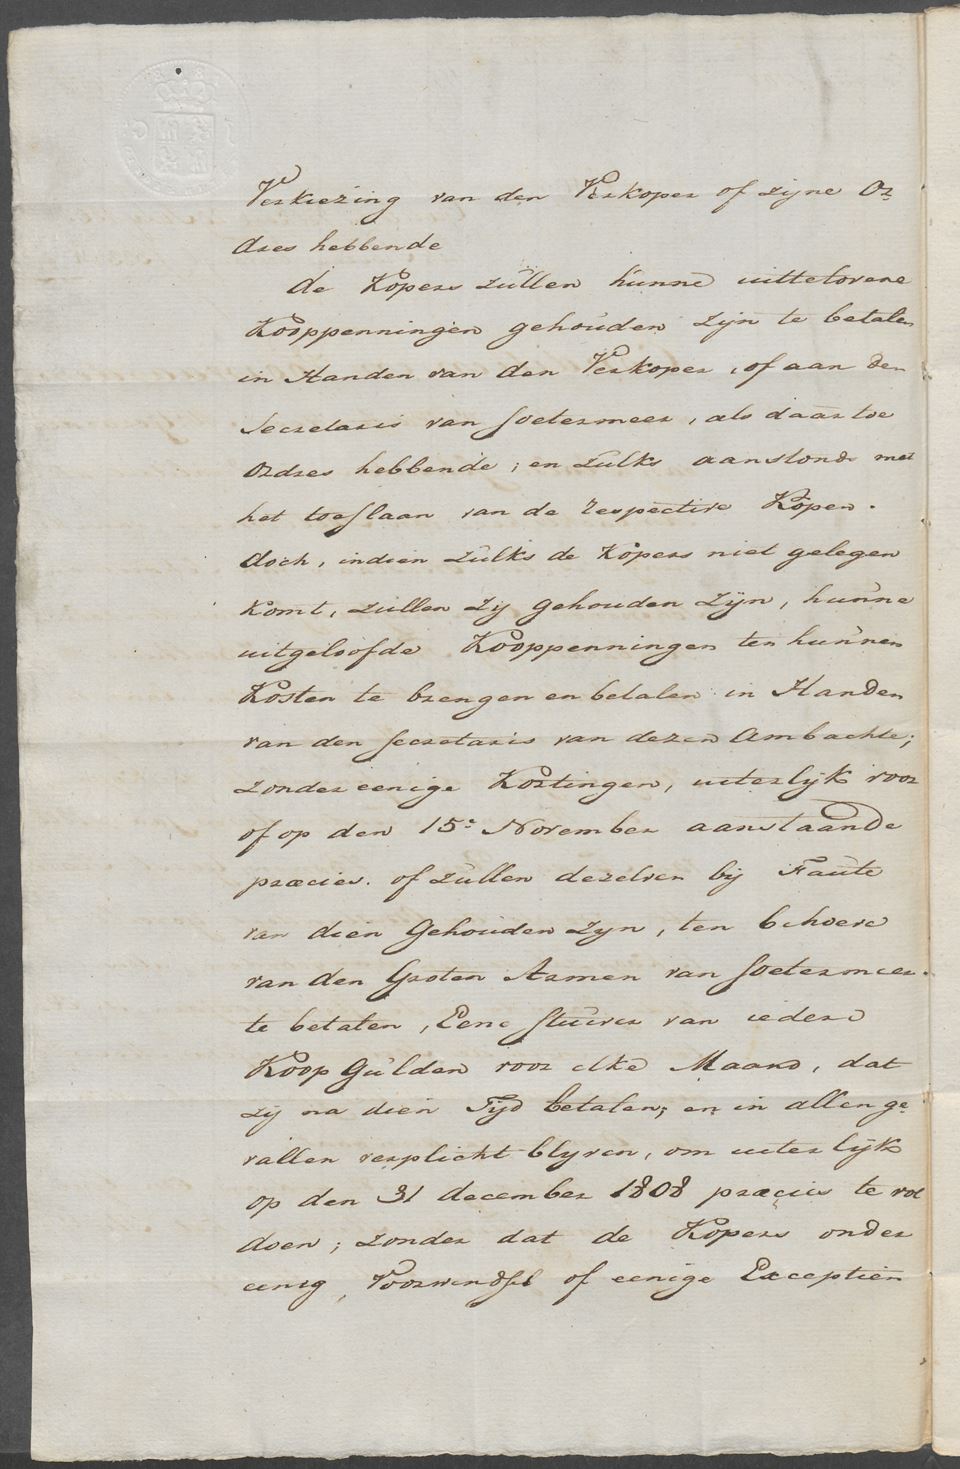 Verkiezing van den Verkoper of zijne Or¬
dres hebbende
de Kopers zullen hunne uittelovene
Kooppenningen gehouden zijn te betalen
in Handen van den Verkoper, of aan den
Secretaris van Soetermeer, als daar toe
Ordres hebbende; en zulks aanstonds met
het toeslaan van de respective Kopen.
doch, indien zulks de Kopers niet gelegen
komt, zullen zij gehouden zijn, hunne
uitgeloofde Kooppenningen ten hunnen
Kosten te brengen en betalen in Handen
van den Secretaris van dezen Ambachte;
zonder eenige Kortingen, uiterlijk voor
of op den 15e November aanstaande
præcies. of zullen dezelven bij Faute
van dien Gehouden zijn, ten behoeve
van den Groten Armen van Soetermeer.
te betalen, Eene Stuiver van iedere
Koop Gulden voor elke Maand, dat
zij na dien Tijd betalen; en in allen ge¬
vallen verplicht blyven, om uiterlijk
op den 31 december 1808 præcies te vol
doen; zonder dat de Kopers onder
eenig Voorwendsel of eenige Exceptien